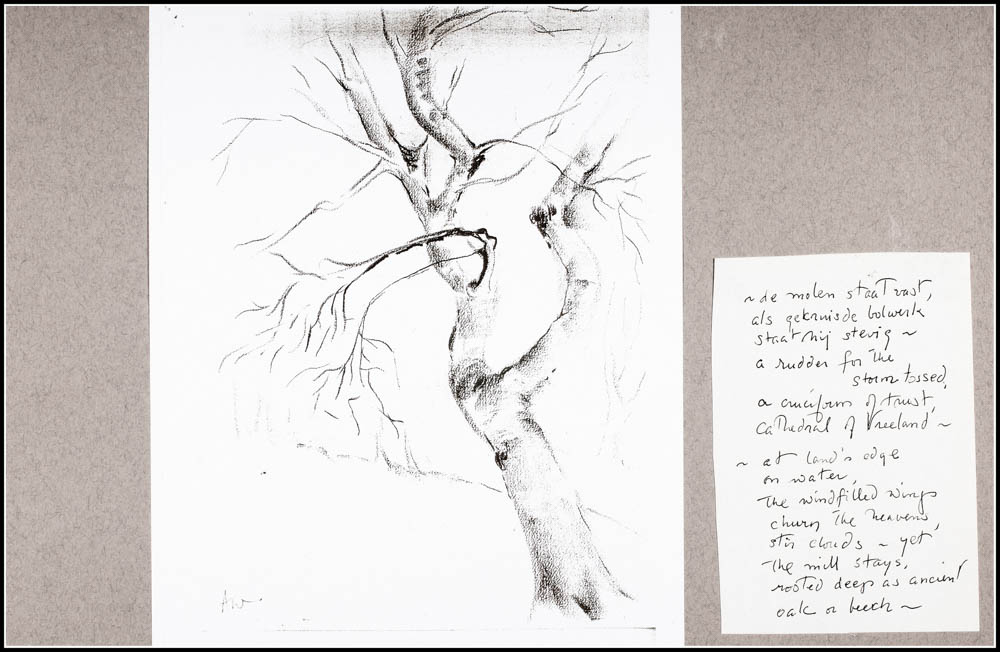 ~ de molen staat vast,
als gekruisde bolwerk
staat hij stevig ~
a rudder for the
storm tossed,
a cruciform of trust,
cathedral of Vreeland ~
~ at land's edge
on water,
the windfilled wings
churn the heavens,
stir clouds ~ yet,
the mill stays,
rooted deep as ancient
oak or beech ~
AW.